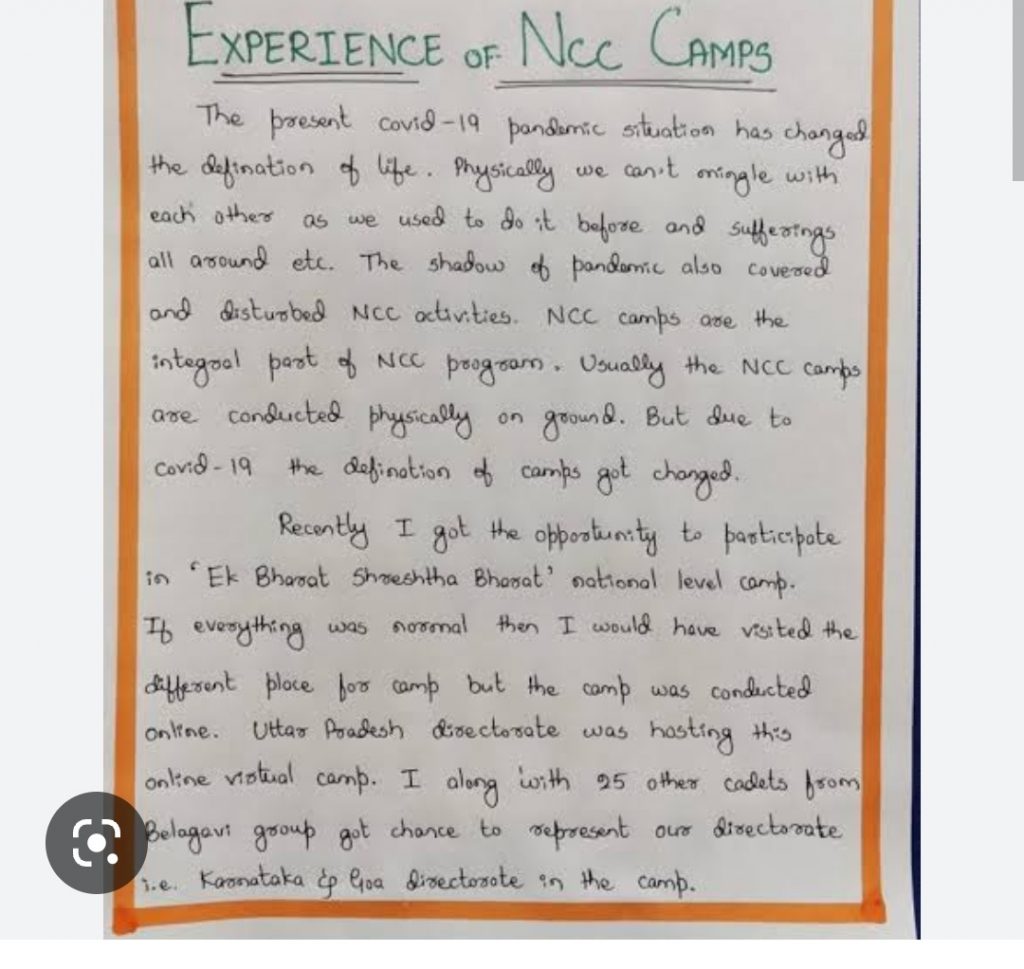 EXPERIENCE OF NCC CAMPS
The present covid-19 pandemic situation has changed
the defination of life. Physically we can't mingle with
each other as we used to do it before and sufferings
all around etc. The shadow of pandemic also covered
and disturbed NCC activities. NCC camps are the
integral part of NCC program. Usually the NCC camps
are conducted physically on ground. But due to
covid-19 the defination of camps got changed.
Recently I got the opportunity to participate
in 'Ek Bharat Shreshtha Bharat' national level camp.
If everything was normal then I would have visited the
different place for camp but the camp was conducted
online. Uttar Pradesh directorate was hosting this
online virtual camp. I along with 25 other cadets from
Belagavi group got chance to represent our directorate
i.e. Karnataka & Goa directorate in the camp.